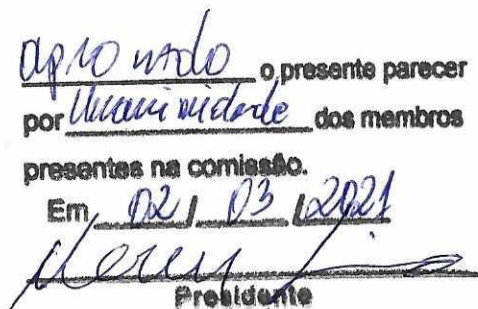 aprovado o presente parecer
por Unanimidade dos membros
presentes na comissão.
Em 02 / 03 / 2021
Presidente